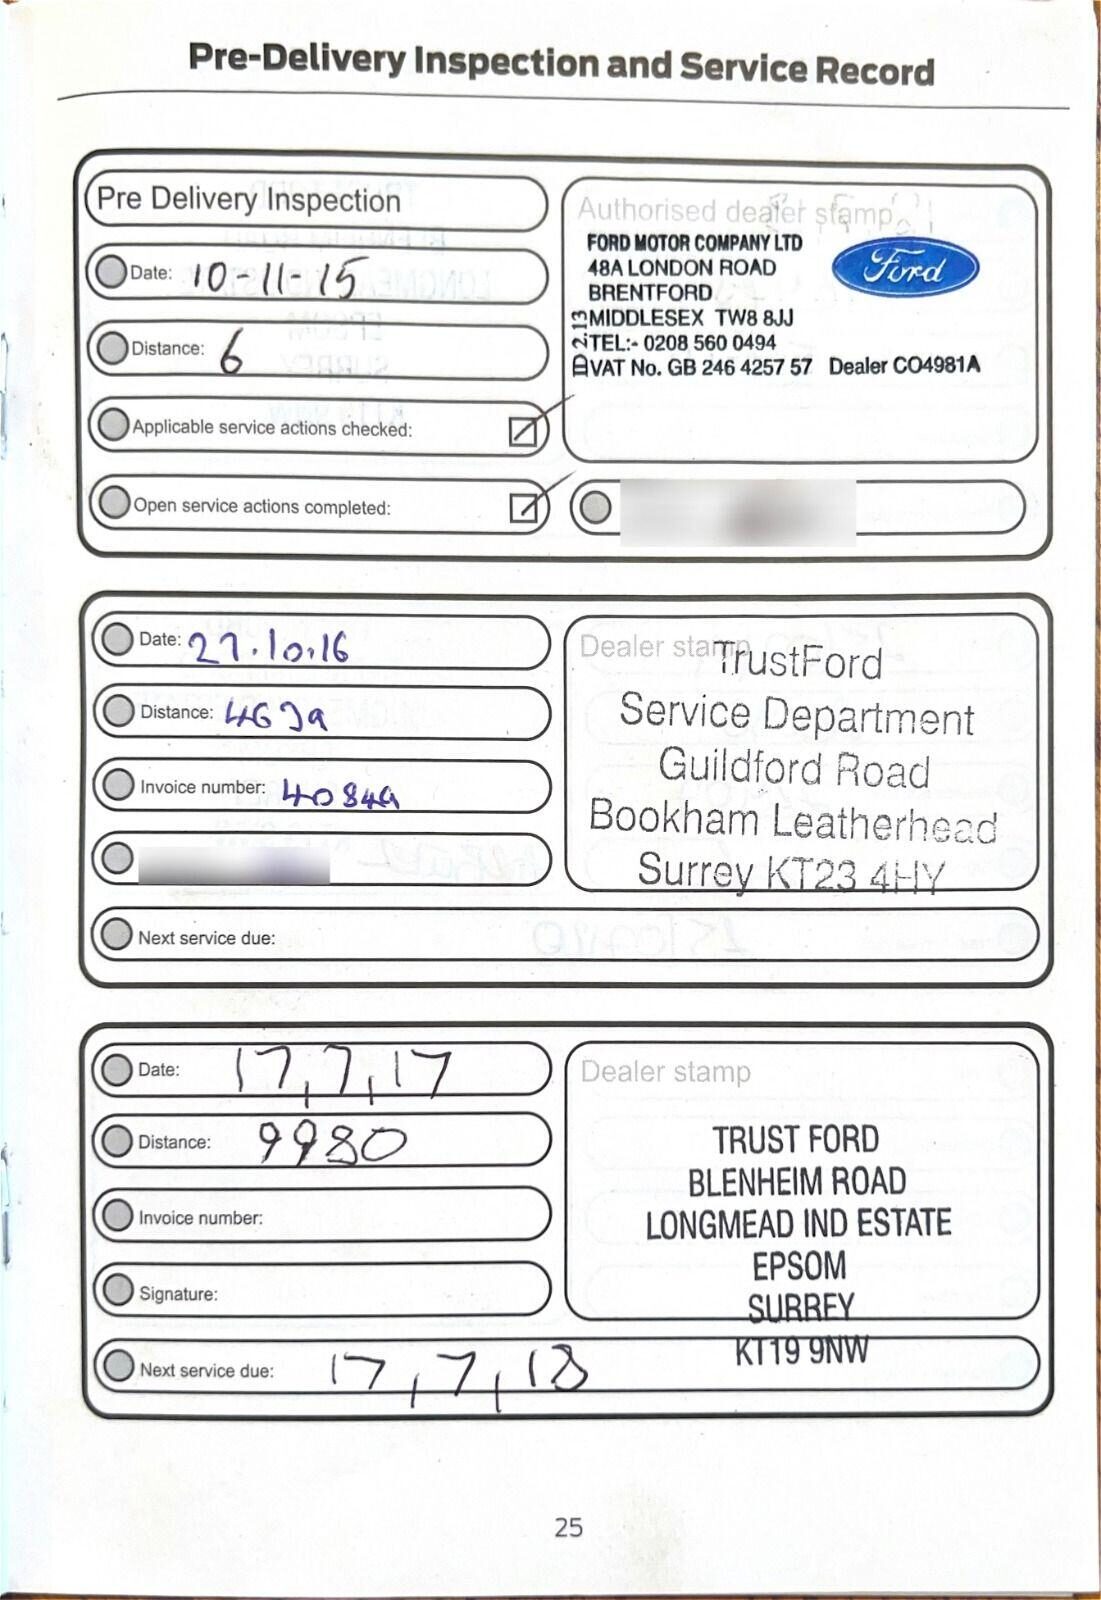 Pre-Delivery Inspection and Service Record
Pre Delivery Inspection
Date: 10-11-15
Distance: 6
Applicable service actions checked:
Open service actions completed:
Authorised dealer stamp
FORD MOTOR COMPANY LTD
48A LONDON ROAD
BRENTFORD
MIDDLESEX TW8 8JJ
TEL:- 0208 560 0494
VAT No. GB 246 4257 57 Dealer CO4981A
ID 2.13
Ford
Date: 27.10.16
Distance:
Invoice number: 40849
Dealer stamp
TrustFord
Service Department
Guildford Road
Bookham Leatherhead
Surrey KT23 4HY
Next service due:
Date: 17,7,17
Distance: 9980
Invoice number:
Signature:
Dealer stamp
TRUST FORD
BLENHEIM ROAD
LONGMEAD IND ESTATE
EPSOM
SURREY
KT19 9NW
Next service due: 17,7,18
25